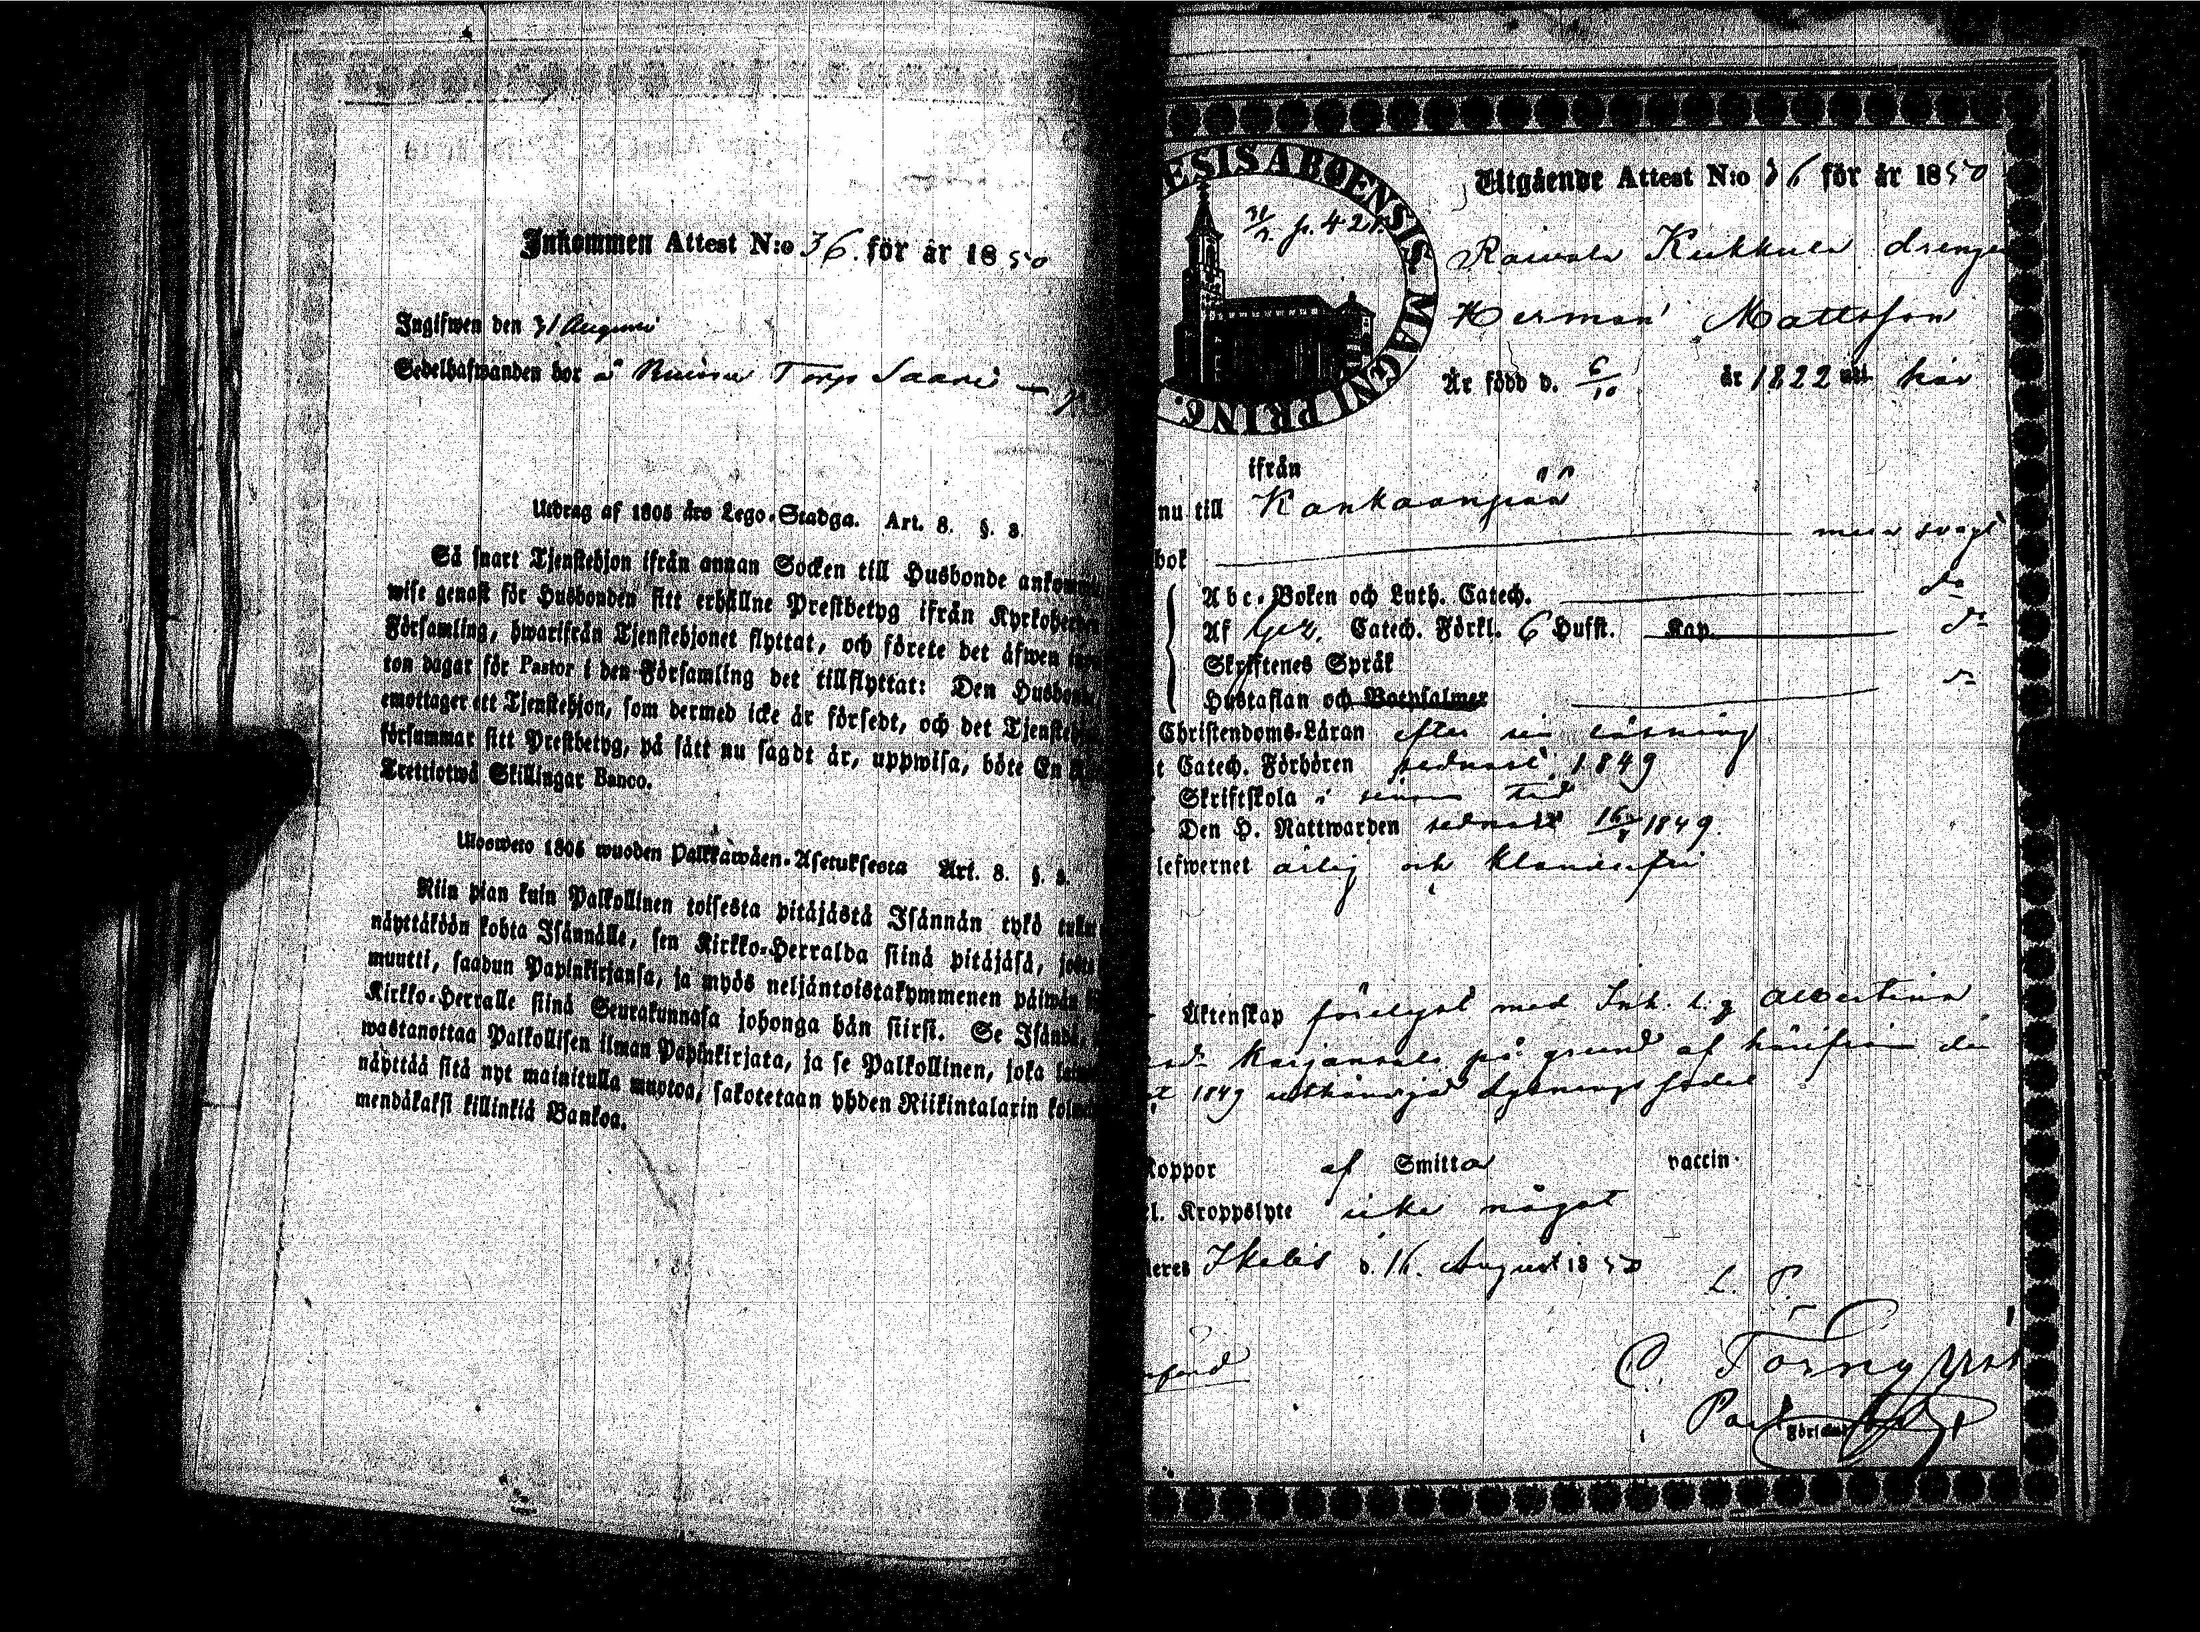 Inkommen Attest N:o 36. för år 1850
Ingifwen den 31 Augusti
Sedelhafwanden bor å Torp Saari
Utdrag af 1805 års Lego-Stadga. Art. 8. §. 3.
Så snart Tjenstehjon ifrån annan Socken till Husbonde
wise genast för Husbonden sitt erhållne Prestbetyg ifrån
Församling, hwarifrån Tjenstehjonet flyttat, och förete det äfwen
ton dagar för Pastor i den Församling det tillflyttat: Den
emottager ett Tjenstehjon, som dermed icke är försedt, och det
försummar sitt Prestbetyg, på sätt nu sagdt är, uppwisa, böte En
Trettiotwå Skillingar Banco.
Ulosweto 1805 wuoden Palkkawäen-Asetuksesta Art. 8. §. 3.
Niin pian kuin Palkollinen toisesta pitäjästä Isännän tykö
näyttäköön kohta Isännälle, sen Kirkko-Herralda siinä pitäjäsä,
muutti, saadun Papinkirjansa, ja myös neljäntoistakymmenen päiwän
Kirkko-Herralle siinä Seurakunnasa johonga hän siirsi. Se Isändä,
wastanottaa Palkollisen ilman Papinkirjata, ja se Palkollinen, joka
näyttää sitä nyt mainitulla muotoa, sakotetaan yhden Riikintalarin
mendäkaksi killinkiä Bankoa.
ESIS ABOENSIS MAGNI PRINC.
p. 421.
Utgående Attest N:o 36 för år 1850
Herman Mattsson
Är född d. 6/10 år 1822 har
ifrån
nu till Kankaanpää
bok svagt
Abc-Boken och Luth. Catech. do
Af Catech. Förkl. 6 Hufst. Kap. do
Skriftenes Språk
Hustaflan och Botpsalmer do
Christendoms-Läran efter sin läsning
t Catech. Förhören sednast 1849
Skriftskola i sinom tid
Den H. Nattwarden sednast 1849.
lefwernet ärlig och klanderfri
Äktenskap förelyst med Inh. Albertina
på grund af härifrån den
1849 lysningssedel
Koppor af Smitta vaccin.
l. Kroppslyte icke något
Ikalis d. 16. August 1850
L. P.
C. Törnqvist
Past.
Församl.